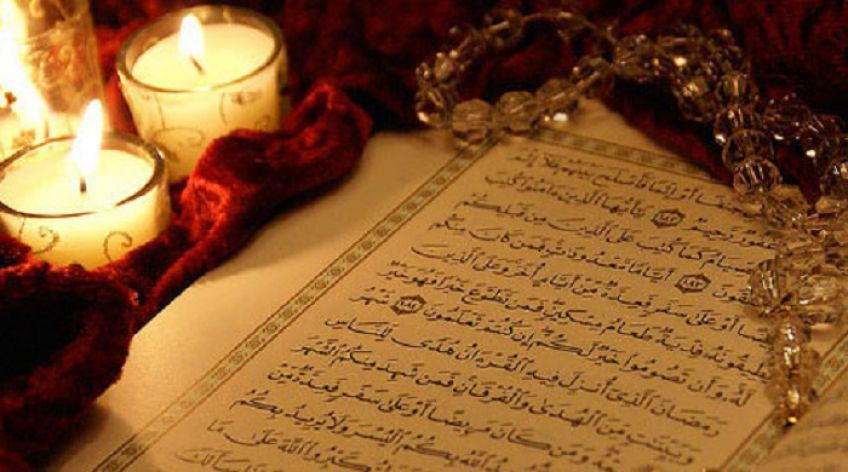 أَوْ إِثْمًا فَأَصْلَحَ بَيْنَهُمْ فَلَا إِثْمَ
غَفُورٌ رَّحِيمٌ ١٨٢ يَٰٓأَيُّهَا ٱلَّذِينَ ءَامَنُوا۟ كُتِبَ
كَمَا كُتِبَ عَلَى ٱلَّذِينَ مِن قَبْلِكُمْ
١٨٣ أَيَّامًا مَّعْدُودَٰتٍ فَمَن كَانَ مِنكُم
أَوْ عَلَىٰ سَفَرٍ فَعِدَّةٌ مِّنْ أَيَّامٍ أُخَرَ وَعَلَى ٱلَّذِينَ
يُطِيقُونَهُۥ فِدْيَةٌ طَعَامُ مِسْكِينٍ فَمَن تَطَوَّعَ خَيْرًا فَهُوَ خَيْرٌ
لَّهُۥ وَأَن تَصُومُوا۟ خَيْرٌ لَّكُمْ إِن كُنتُمْ تَعْلَمُونَ ١٨٤ شَهْرُ
رَمَضَانَ ٱلَّذِىٓ أُنزِلَ فِيهِ ٱلْقُرْءَانُ هُدًى لِّلنَّاسِ
وَبَيِّنَٰتٍ مِّنَ ٱلْهُدَىٰ وَٱلْفُرْقَانِ فَمَن شَهِدَ مِنكُمُ ٱلشَّهْرَ
وَمَن كَانَ مَرِيضًا أَوْ عَلَىٰ سَفَرٍ فَعِدَّةٌ مِّنْ
ٱللَّهُ بِكُمُ ٱلْيُسْرَ وَلَا يُرِيدُ بِكُمُ
ٱللَّهَ عَلَىٰ مَا